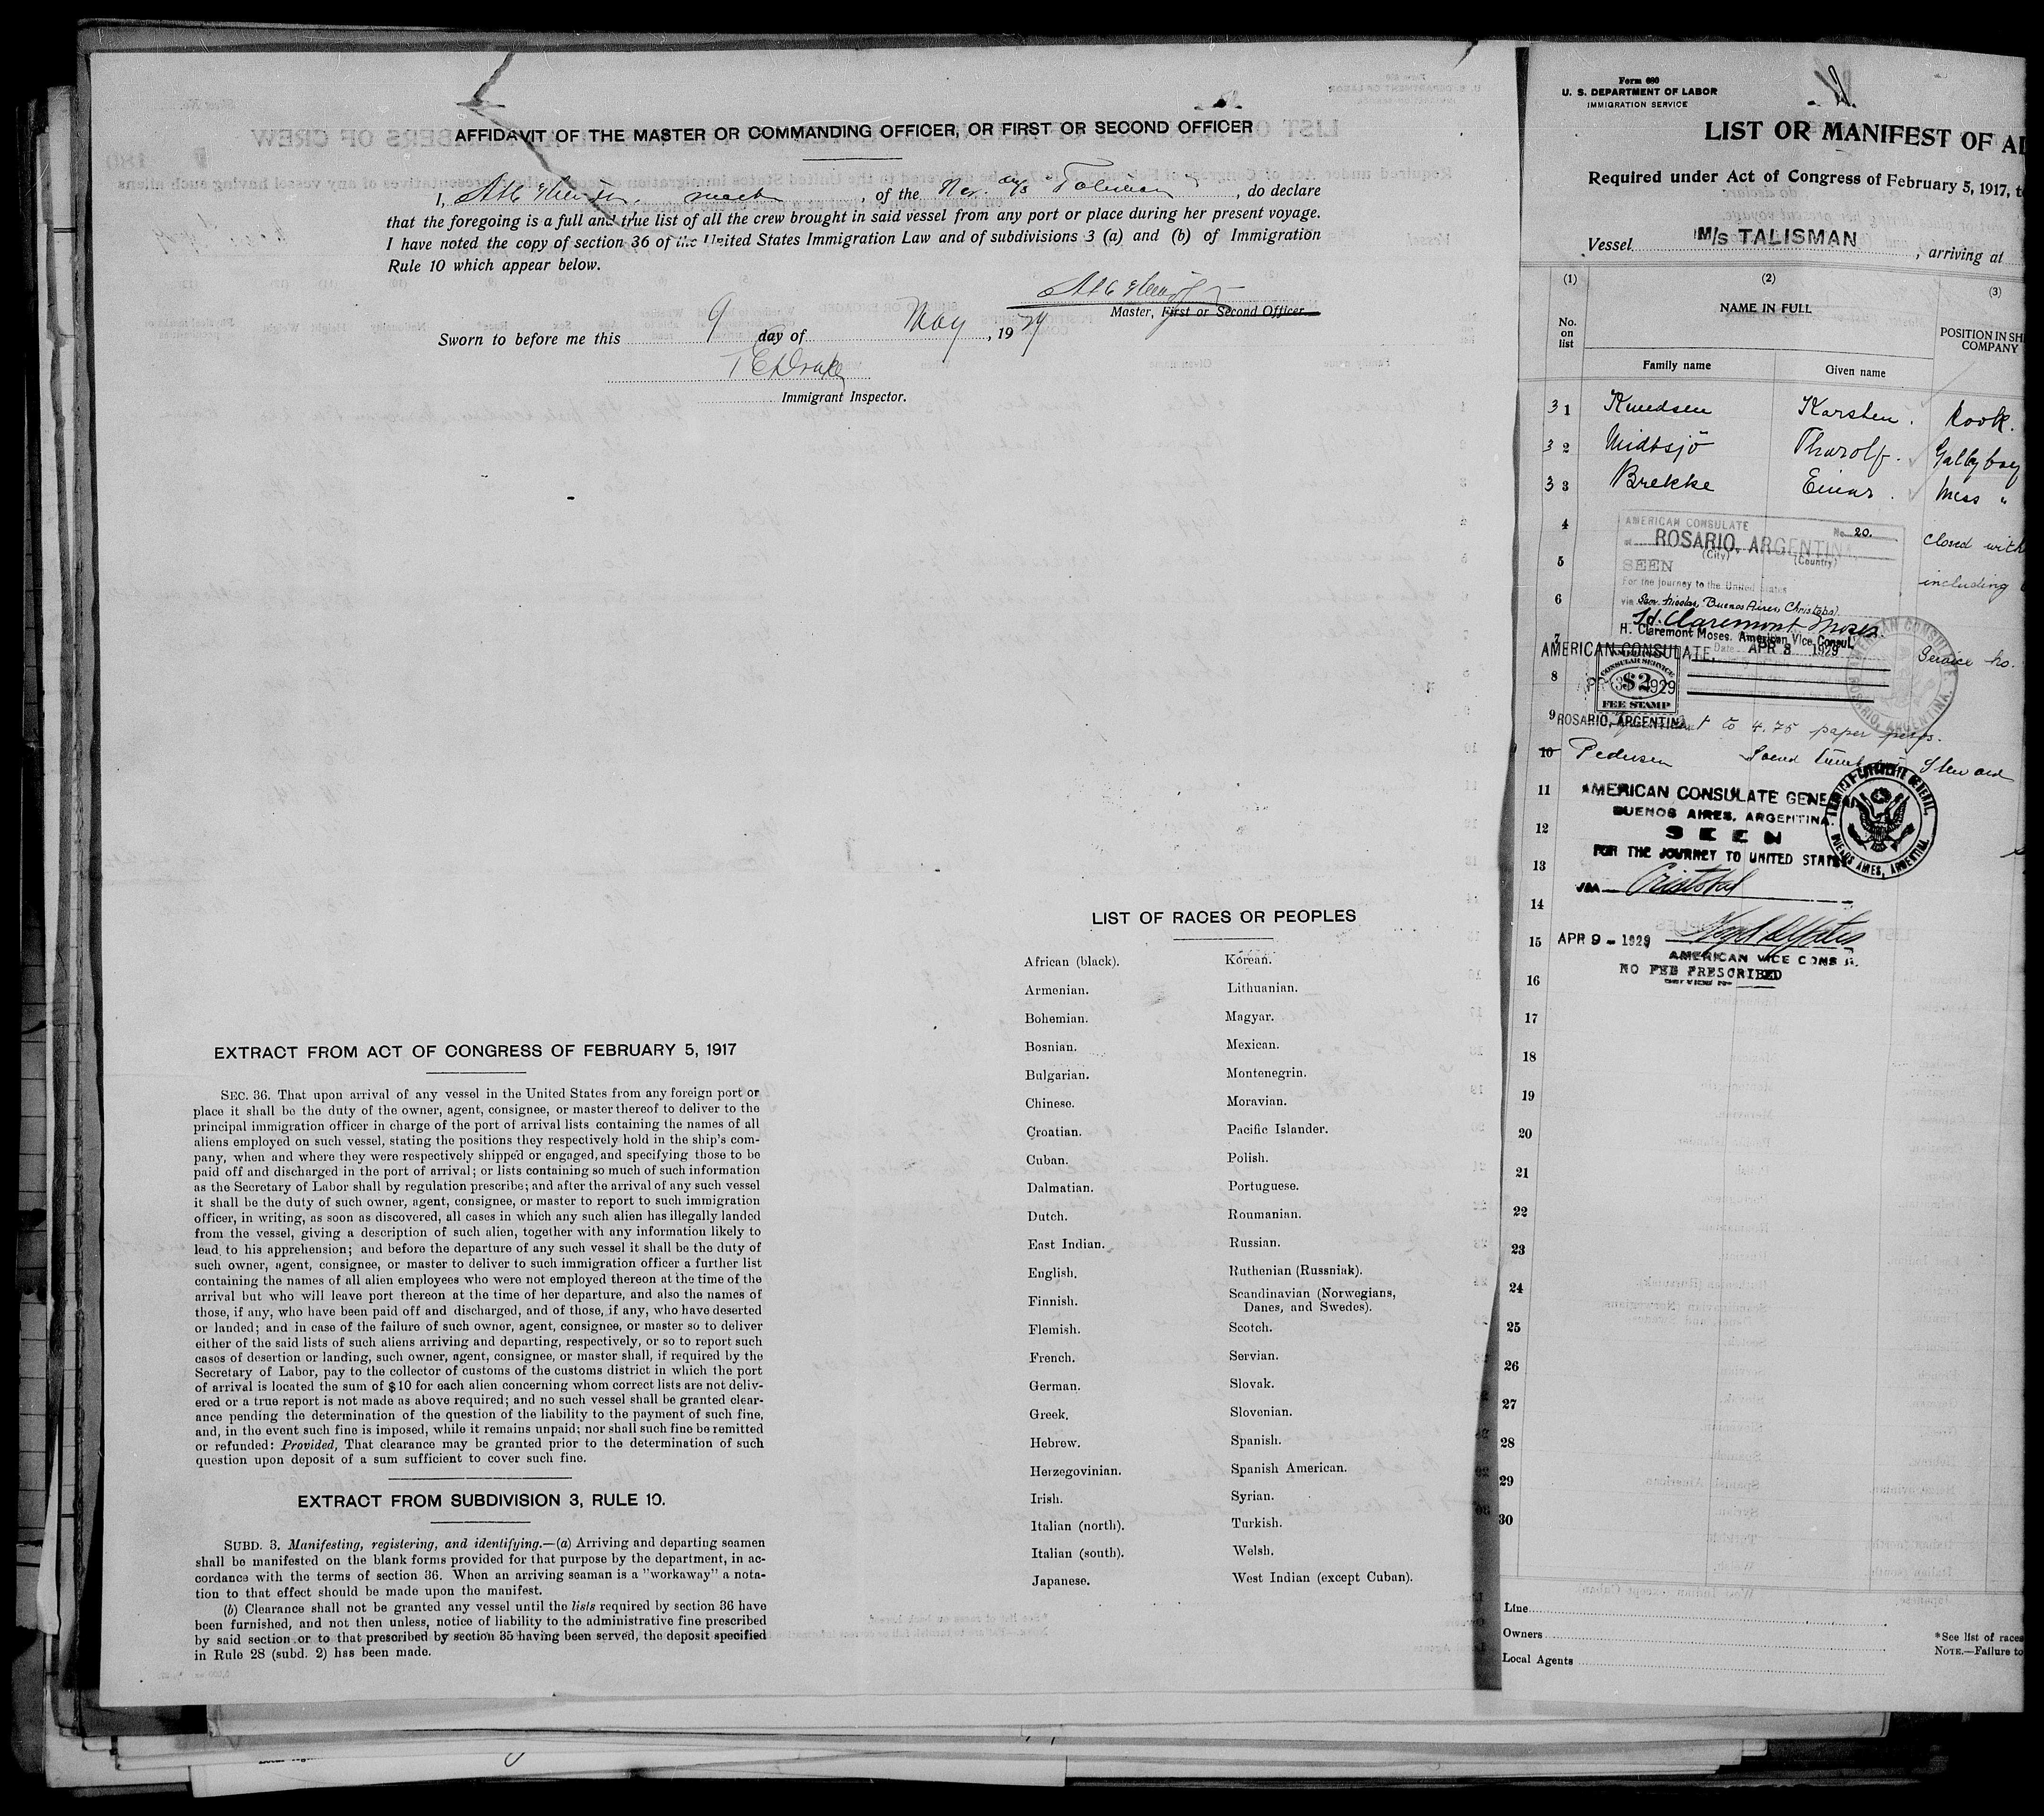 AFFIDAVIT OF THE MASTER OR COMMANDING OFFICER, OR FIRST OR SECOND OFFICER
I, , of the Nor. M/s "Talisman", do declare
that the foregoing is a full and true list of all the crew brought in said vessel from any port or place during her present voyage.
I have noted the copy of section 36 of the United States Immigration Law and of subdivisions 3 (a) and (b) of Immigration
Rule 10 which appear below.
Master, First or Second Officer
Sworn to before me this 9 day of May, 1929
T E Drake
Immigrant Inspector.
LIST OF RACES OR PEOPLES
African (black).
Armenian.
Bohemian.
Bosnian.
Bulgarian.
Chinese.
Croatian.
Cuban.
Dalmatian.
Dutch.
East Indian.
English.
Finnish.
Flemish.
French.
German.
Greek.
Hebrew.
Herzegovinian.
Irish.
Italian (north).
Italian (south).
Japanese.
Korean.
Lithuanian.
Magyar.
Mexican.
Montenegrin.
Moravian.
Pacific Islander.
Polish.
Portuguese.
Roumanian.
Russian.
Ruthenian (Russniak).
Scandinavian (Norwegians,
Danes, and Swedes).
Scotch.
Servian.
Slovak.
Slovenian.
Spanish.
Spanish American.
Syrian.
Turkish.
Welsh.
West Indian (except Cuban).
EXTRACT FROM ACT OF CONGRESS OF FEBRUARY 5, 1917
SEC. 36. That upon arrival of any vessel in the United States from any foreign port or
place it shall be the duty of the owner, agent, consignee, or master thereof to deliver to the
principal immigration officer in charge of the port of arrival lists containing the names of all
aliens employed on such vessel, stating the positions they respectively hold in the ship's com-
pany, when and where they were respectively shipped or engaged, and specifying those to be
paid off and discharged in the port of arrival; or lists containing so much of such information
as the Secretary of Labor shall by regulation prescribe; and after the arrival of any such vessel
it shall be the duty of such owner, agent, consignee, or master to report to such immigration
officer, in writing, as soon as discovered, all cases in which any such alien has illegally landed
from the vessel, giving a description of such alien, together with any information likely to
lead to his apprehension; and before the departure of any such vessel it shall be the duty of
such owner, agent, consignee, or master to deliver to such immigration officer a further list
containing the names of all alien employees who were not employed thereon at the time of the
arrival but who will leave port thereon at the time of her departure, and also the names of
those, if any, who have been paid off and discharged, and of those, if any, who have deserted
or landed; and in case of the failure of such owner, agent, consignee, or master so to deliver
either of the said lists of such aliens arriving and departing, respectively, or so to report such
cases of desertion or landing, such owner, agent, consignee, or master shall, if required by the
Secretary of Labor, pay to the collector of customs of the customs district in which the port
of arrival is located the sum of $10 for each alien concerning whom correct lists are not deliv-
ered or a true report is not made as above required; and no such vessel shall be granted clear-
ance pending the determination of the question of the liability to the payment of such fine,
and, in the event such fine is imposed, while it remains unpaid; nor shall such fine be remitted
or refunded: Provided, That clearance may be granted prior to the determination of such
question upon deposit of a sum sufficient to cover such fine.
EXTRACT FROM SUBDIVISION 3, RULE 10.
SUBD. 3. Manifesting, registering, and identifying.—(a) Arriving and departing seamen
shall be manifested on the blank forms provided for that purpose by the department, in ac-
cordance with the terms of section 36. When an arriving seaman is a "workaway" a nota-
tion to that effect should be made upon the manifest.
(b) Clearance shall not be granted any vessel until the lists required by section 36 have
been furnished, and not then unless, notice of liability to the administrative fine prescribed
by said section or to that prescribed by section 35 having been served, the deposit specified
in Rule 28 (subd. 2) has been made.
Form 680
U. S. DEPARTMENT OF LABOR
IMMIGRATION SERVICE
LIST OR MANIFEST OF AL
Required under Act of Congress of February 5, 1917, t
Vessel M/S TALISMAN, arriving at
(1) (2) (3)
No. on list NAME IN FULL POSITION IN SH COMPANY
Family name Given name
31 Knudsen Karsten. Kook.
32 Midtsjö Thorolf. Galleyboy
33 Brekke Einar. Mess "
4
AMERICAN CONSULATE No. 20.
at ROSARIO, ARGENTINA
(City) (Country)
closed with
5
SEEN
including
For the journey to the United States
6
via San Nicolas, Buenos Aires, Christobal.
H. Claremont Moses
7
H. Claremont Moses. American Vice Consul.
AMERICAN CONSULATE, Date APR 8 1929
Service No.
AMERICAN CONSULATE ROSARIO, ARGENTINA.
8
CONSULAR SERVICE
APR 8 1929
$2
FEE STAMP
9 ROSARIO, ARGENTINA to 4.75 paper pesos.
10 Pedersen Steward
11
AMERICAN CONSULATE GENERAL
BUENOS AIRES, ARGENTINA.
12
SEEN
FOR THE JOURNEY TO UNITED STATES
AMERICAN CONSULATE GENERAL, BUENOS AIRES, ARGENTINA.
13
VIA Cristobal
14
15 APR 9 - 1929
AMERICAN VICE CONSUL.
NO FEE PRESCRIBED
Service No
16
17
18
19
20
21
22
23
24
25
26
27
28
29
30
Line
Owners
Local Agents
*See list of races
NOTE.—Failure to